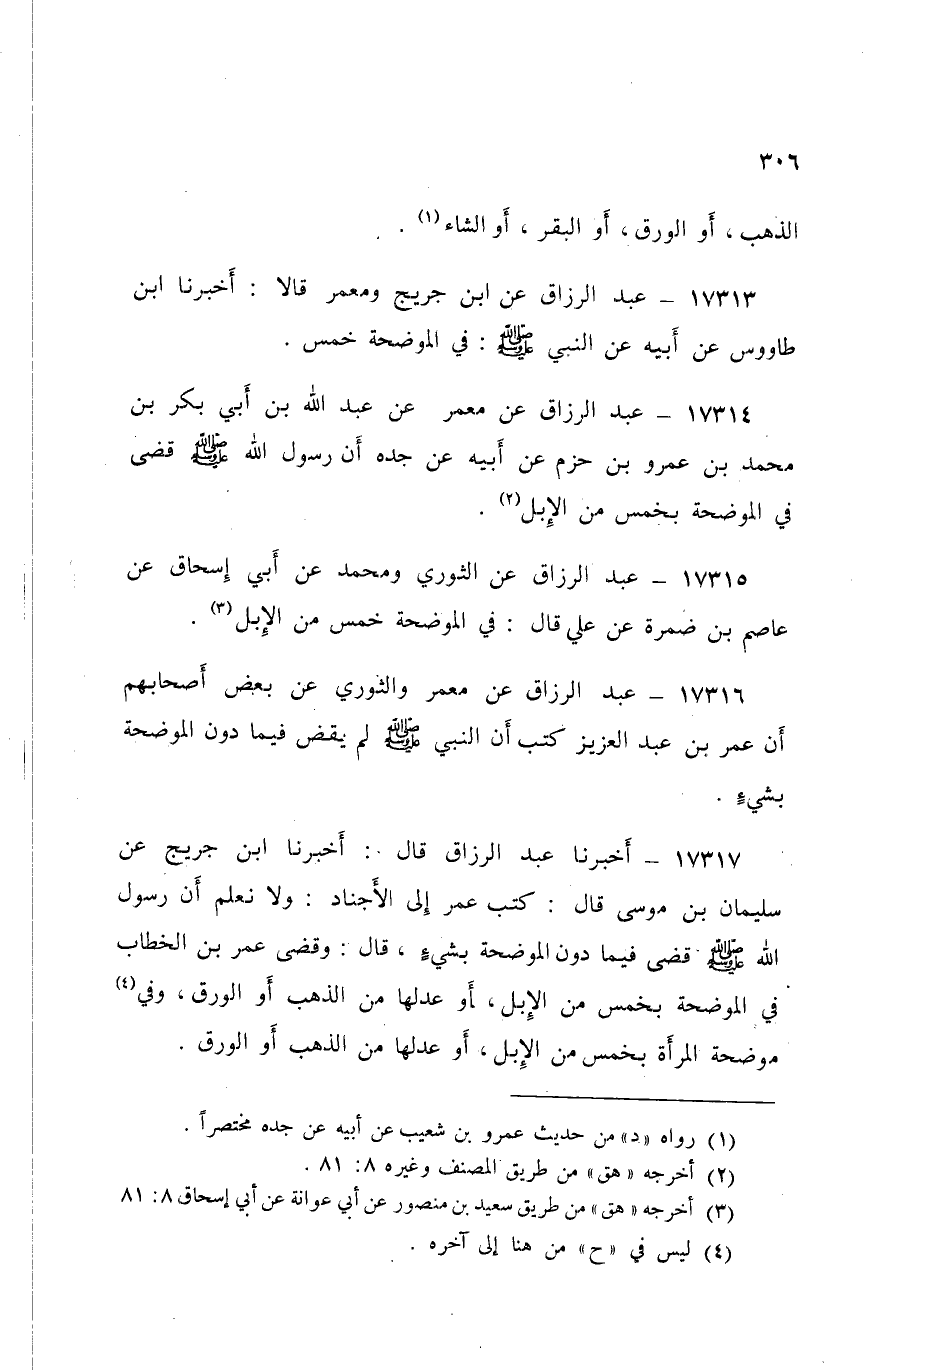 ٣٠٦
الذهب ، أو الورق ، أو البقر ، أو الشاء(١) .
١٧٣١٣ – عبد الرزاق عن ابن جريج ومعمر قالا : أخبرنا ابن
طاووس عن أبيه عن النبي ﷺ : في الموضحة خمس .
١٧٣١٤ – عبد الرزاق عن معمر عن عبد الله بن أبي بكر بن
محمد بن عمرو بن حزم عن أبيه عن جده أن رسول الله ﷺ قضى
في الموضحة بخمس من الإبل(٢) .
١٧٣١٥ – عبد الرزاق عن الثوري ومحمد عن أبي إسحاق عن
عاصم بن ضمرة عن علي قال : في الموضحة خمس من الإبل(٣) .
١٧٣١٦ – عبد الرزاق عن معمر والثوري عن بعض أصحابهم
أن عمر بن عبد العزيز كتب أن النبي ﷺ لم يقض فيما دون الموضحة
بشيءٍ .
١٧٣١٧ – أخبرنا عبد الرزاق قال : أخبرنا ابن جريج عن
سليمان بن موسى قال : كتب عمر إلى الأجناد : ولا نعلم أن رسول
الله ﷺ قضى فيما دون الموضحة بشيءٍ ، قال : وقضى عمر بن الخطاب
في الموضحة بخمس من الإبل ، أو عدلها من الذهب أو الورق ، وفي(٤)
موضحة المرأة بخمس من الإبل ، أو عدلها من الذهب أو الورق .
(١) رواه «د» من حديث عمرو بن شعيب عن أبيه عن جده مختصراً .
(٢) أخرجه «هق» من طريق المصنف وغيره ٨: ٨١ .
(٣) أخرجه «هق» من طريق سعيد بن منصور عن أبي عوانة عن أبي إسحاق ٨: ٨١
(٤) ليس في «ح» من هنا إلى آخره .